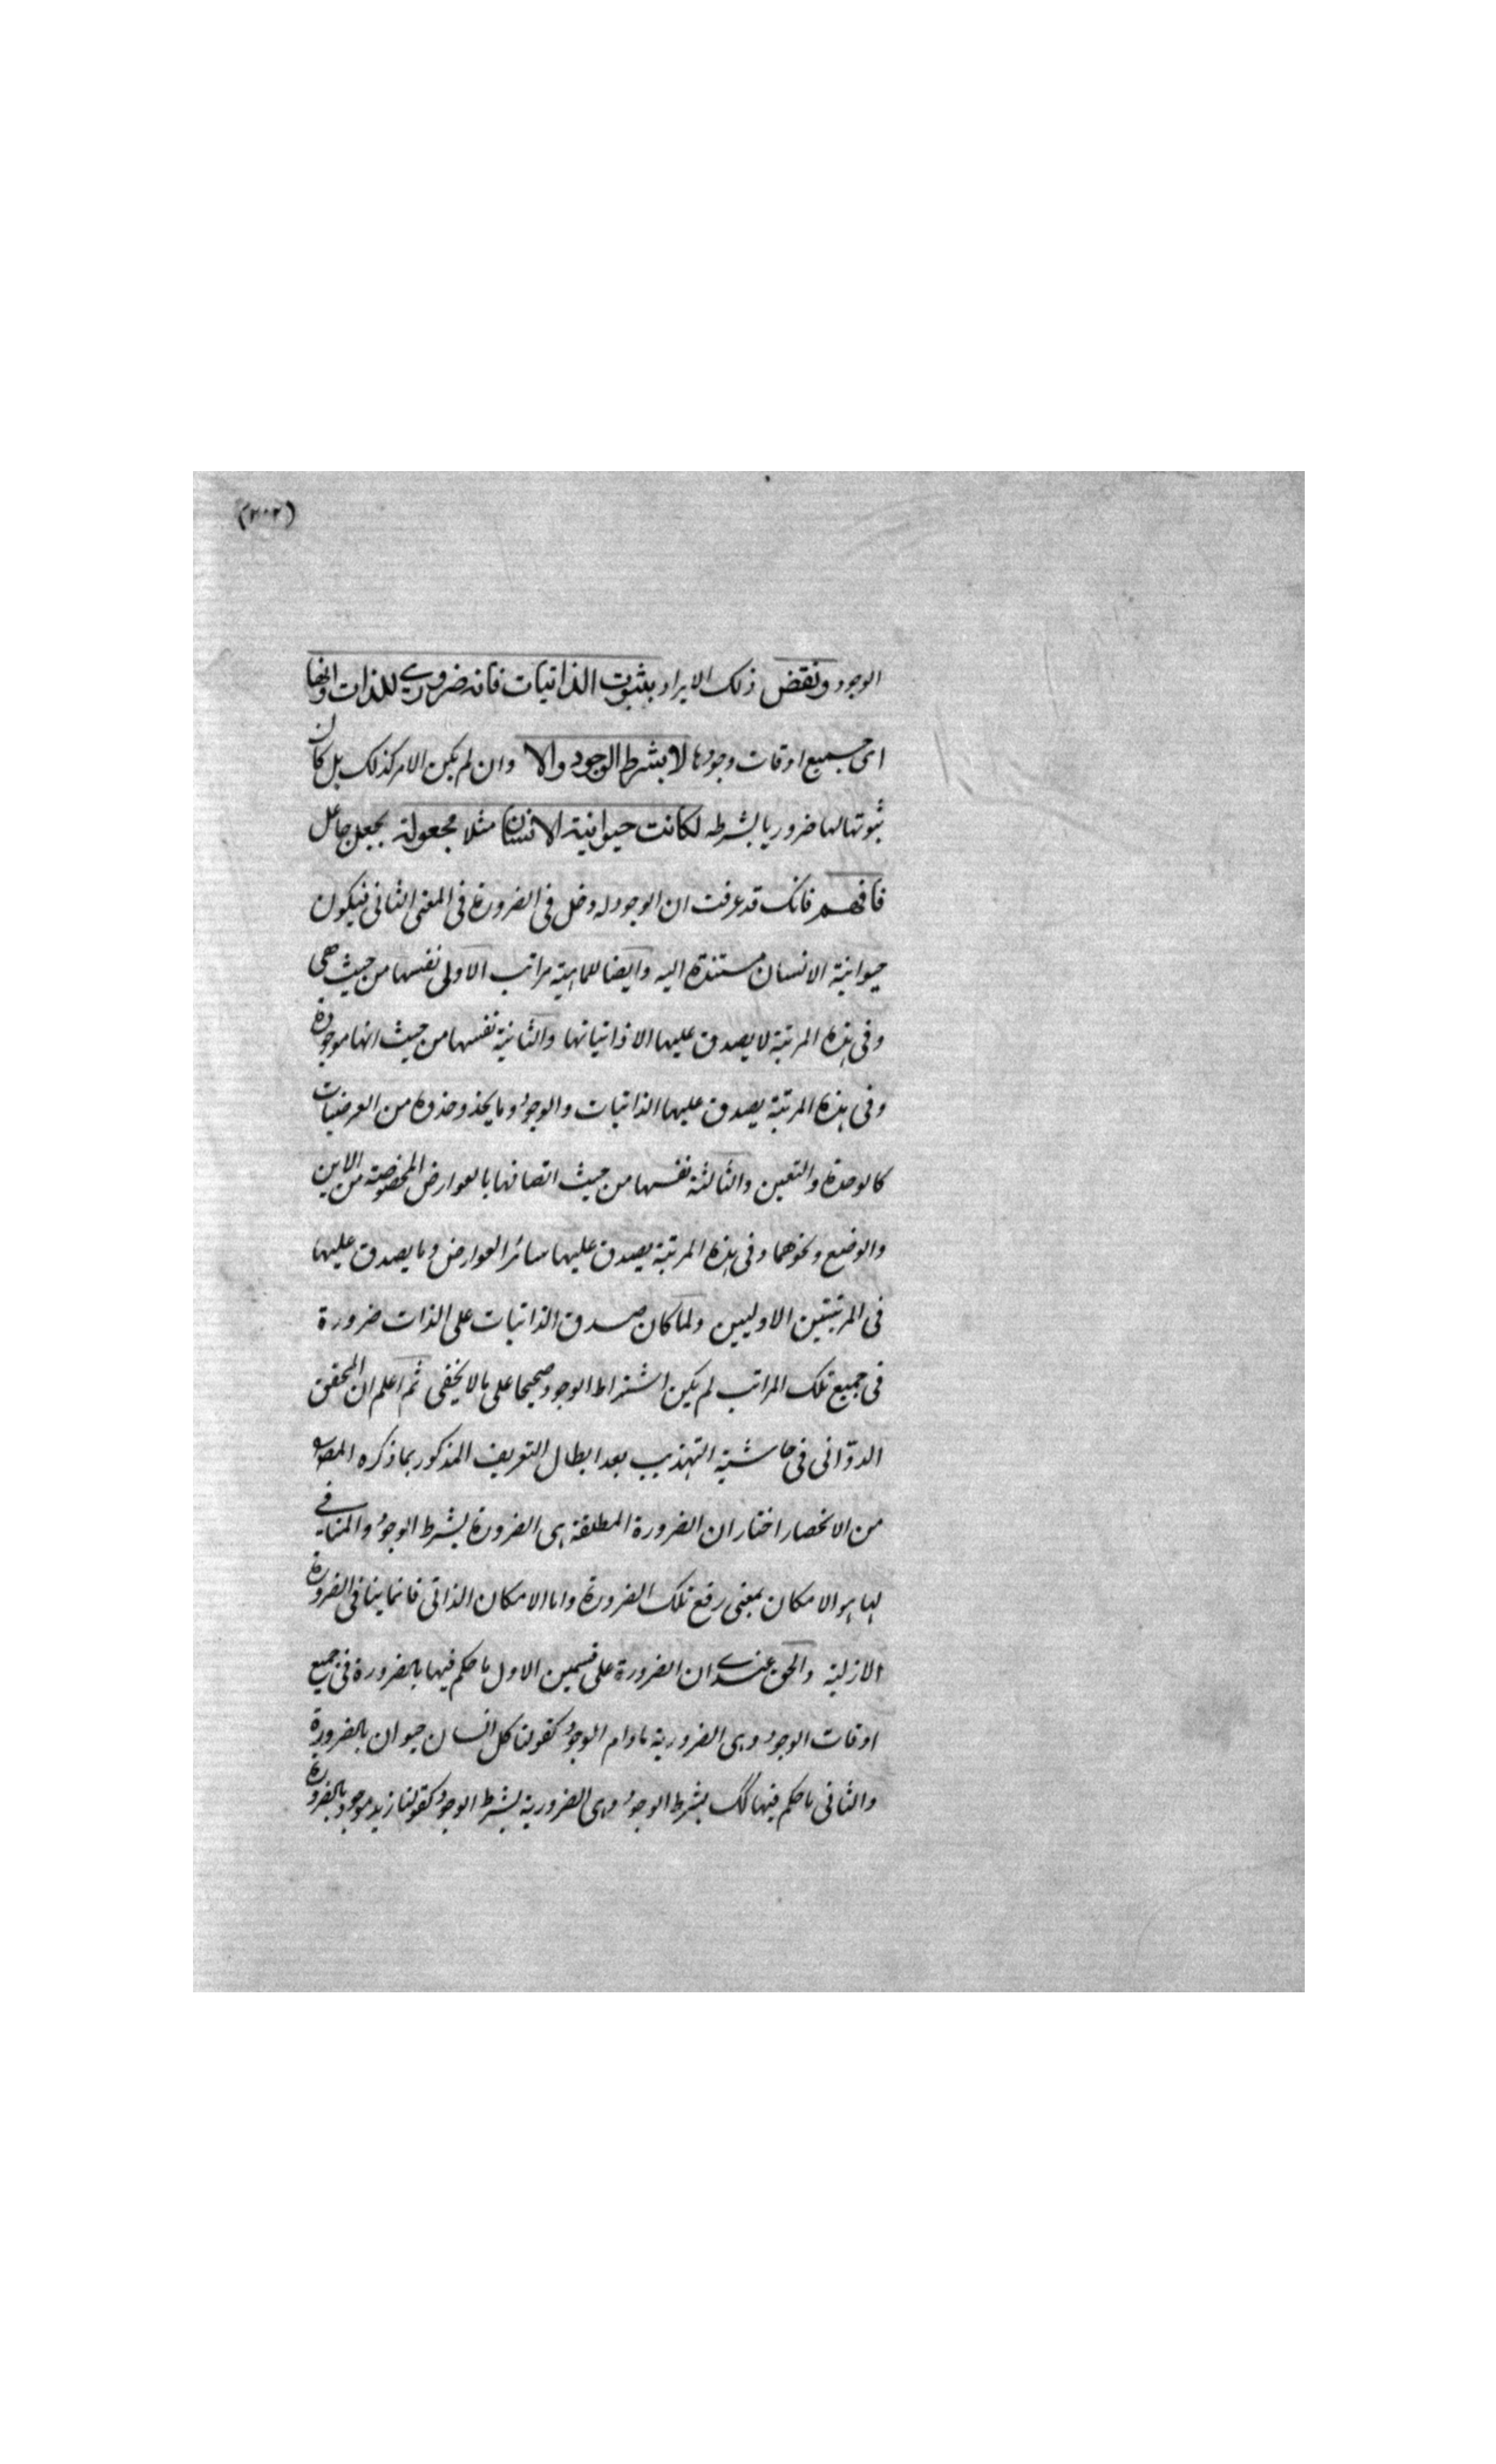 (٢٠٢)
الوجود ونقض ذلك الايراد بثبوت الذاتيات فانه ضروري للذات دائما
اى جميع اوقات وجودها لا بشرط الوجود والا وان لم يكن الامر كذلك بل كان
ثبوتها لها ضروريا بشرطه لكانت حيوانية الانسان مثلا مجعولة بجعل جاعل
فافهم فانك قد عرفت ان الوجود له دخل فى الضرورة فى المعنى الثانى فيكون
حيوانية الانسان مستندة اليه وايضا للماهية مراتب الاولى نفسها من حيث هى
وفى هذه المرتبة لا يصدق عليها الا ذاتياتها والثانية نفسها من حيث انها موجودة
وفى هذه المرتبة يصدق عليها الذاتيات والوجود وما يحذو حذوه من العرضيات
كالوحدة والتعين والثالثة نفسها من حيث اتصافها بالعوارض المخصوصة من الاين
والوضع ونحوهما وفى هذه المرتبة يصدق عليها سائر العوارض وما يصدق عليها
فى المرتبتين الاوليين ولما كان صدق الذاتيات على الذات ضرورة
فى جميع تلك المراتب لم يكن اشتراط الوجود صحيحا على ما لا يخفى ثم اعلم ان المحقق
الدوّانى فى حاشية التهذيب بعد ابطال التعريف المذكور بما ذكره المصـ
من الانحصار اختار ان الضرورة المطلقة هى الضرورة بشرط الوجود والمنافي
لها هو الامكان بمعنى رفع تلك الضرورة واما الامكان الذاتى فانما ينافى الضرورة
الازلية والحق عندي ان الضرورة على قسمين الاول ما حكم فيها بالضرورة فى جميع
اوقات الوجود وهى الضرورية ما دام الوجود كقولنا كل انسان حيوان بالضرورة
والثانى ما حكم فيها كك بشرط الوجود وهى الضرورية بشرط الوجود كقولنا زيد موجود بالضرورة